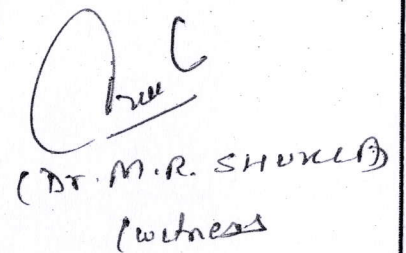 (Dr. M.R. SHUKLA)
(witness